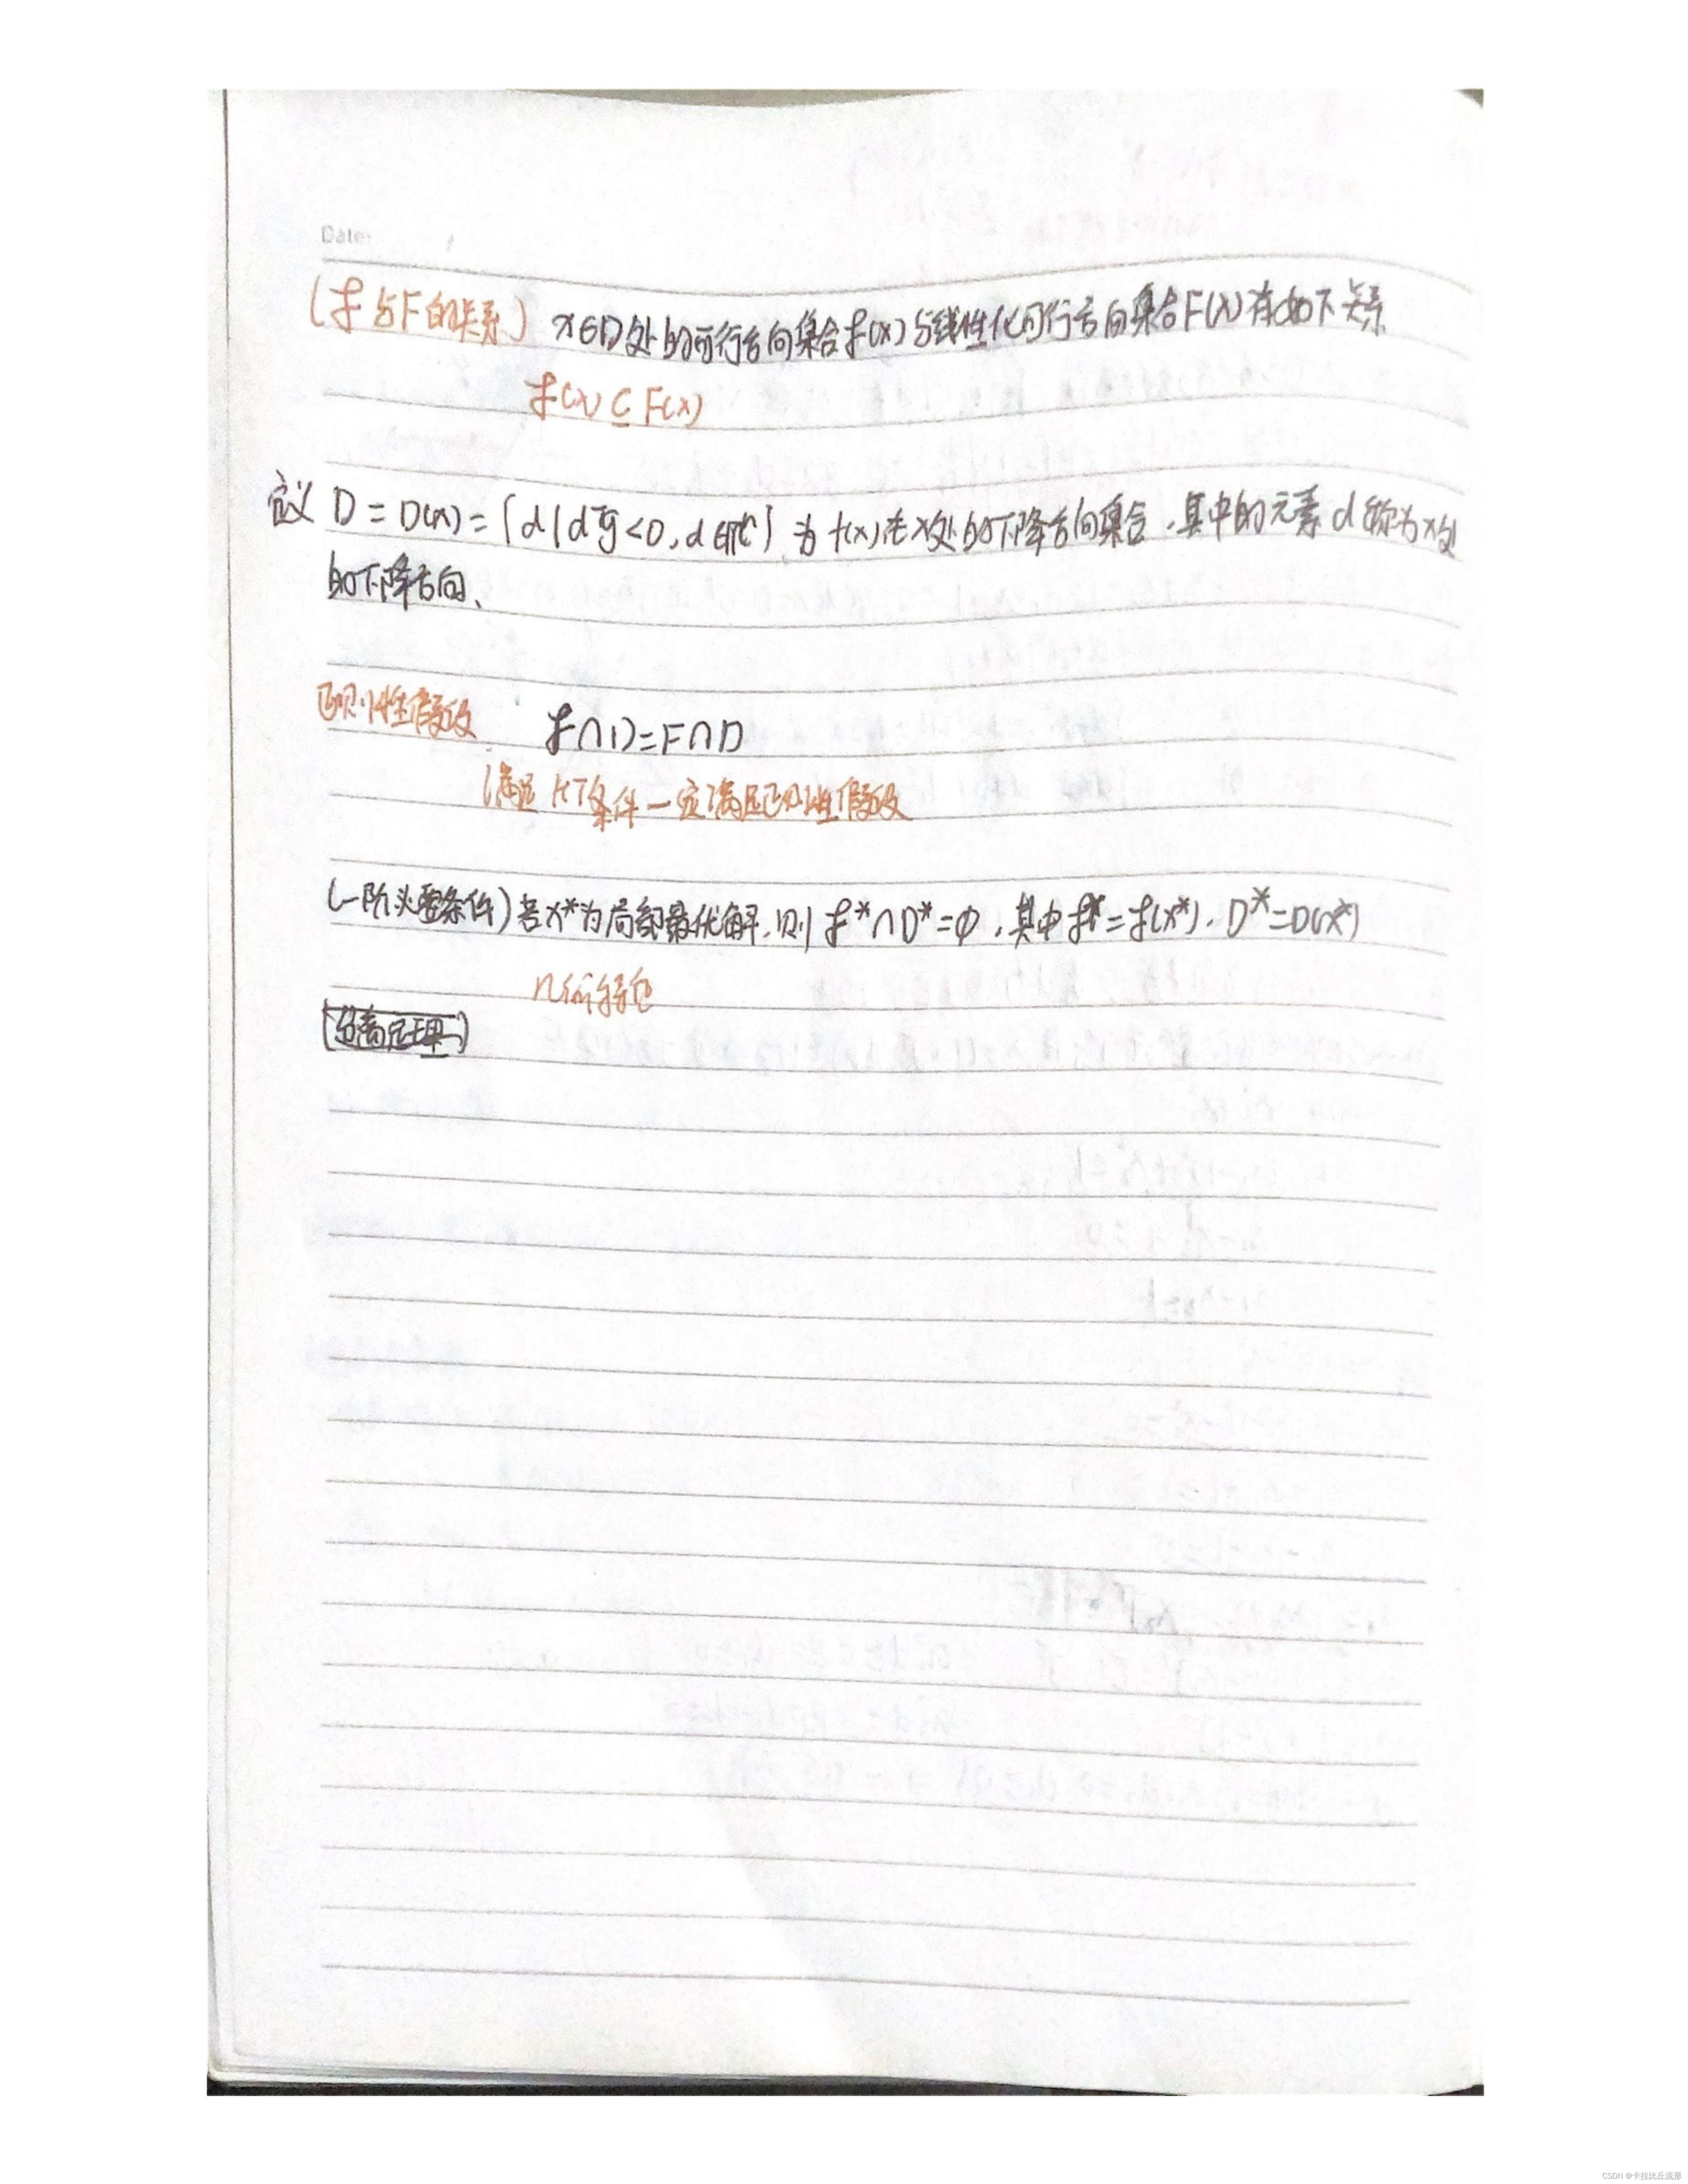 Date:
(𝓕与F的关系) x∈D处的可行方向集合𝓕(x)与线性化可行方向集合F(x)有如下关系
𝓕(x) ⊆ F(x)
定义 D = D(x) = {d | dᵀg < 0, d∈Rⁿ} 为 f(x)在x处的下降方向集合,其中的元素d称为x处
的下降方向、
正则性假设 𝓕∩D=F∩D
(满足KT条件一定满足正则性假设
(一阶必要条件) 若x*为局部最优解,则 𝓕*∩D*=∅,其中𝓕*=𝓕(x*),D*=D(x*)
几何特征
(分离定理)
CSDN @卡拉比丘流形